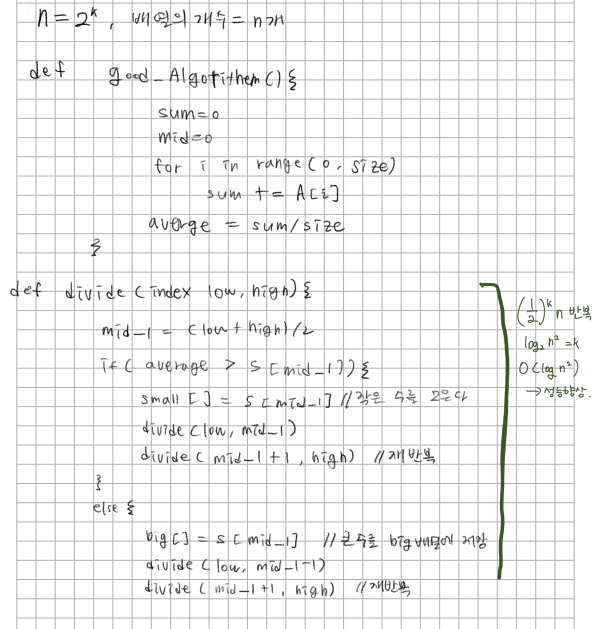 n = 2^k , 배열의 개수 = n개
def good_Algorithem() {
sum=0
mid=0
for i in range(0, size)
sum += A[i]
averge = sum/size
}
def divide (index low, high) {
mid_1 = (low + high)/2
if( average > S[mid_1]) {
small [] = S[mid_1] // 작은 수를 모은다
divide (low, mid_1)
divide ( mid_1+1 , high) // 재반복
}
else {
big[] = S[mid_1] // 큰 수를 big 배열에 저장
divide (low, mid_1-1)
divide ( mid_1+1, high) // 재반복
(1/2)^k n 반복
log₂ n² = k
O(log n²)
→ 성능향상.